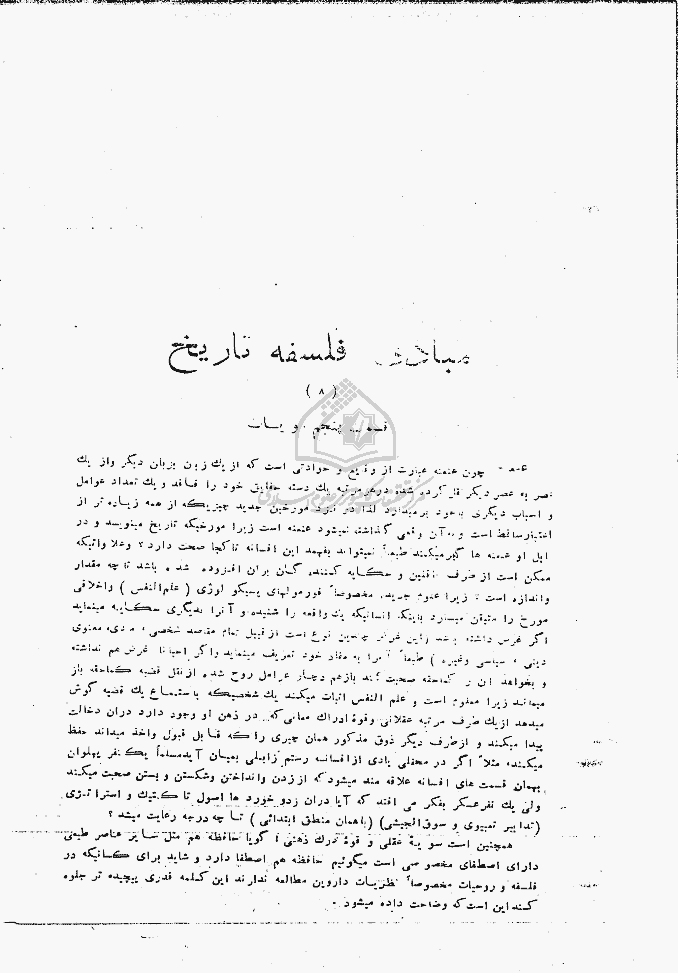 مبادی فلسفه تاریخ
( ۸ )
قسمت پنجم روایات
چون عنعنه عبارت از وقایع و حوادثی است که از یك زبان بزبان دیگر واز یك
عصر به عصر دیگر نقل کرده شده درهر مرتبه یك دسته حقایق خود را فاقد و یك تعداد عوامل
و اسباب دیگری باخود برمیدارد لذا در نزد مورخین جدید چیزیکه از همه زیاده تر از
اعتبار ساقط است و بآن وقعی گذاشته نمیشود عنعنه است زیرا مورخیکه تاریخ مینویسد و در
اول او عنعنه ها گیر میکند طبعاً نمیتواند بفهمد این افسانه تا کجا صحت دارد ؟ وعلاوه اینکه
ممکن است از طرف ناقلین و حکایه کننده گان بران افزوده شده باشد تا چه مقدار
واندازه است ؟ زیرا علوم جدیده مخصوصاً فورمولهای پسیکو لوژی ( علم النفس ) واخلاقی
مورخ را متیقن میسازد باینکه انسانیکه یك واقعه را شنیده و آنرا بدیگری حکایه مینماید
اگر غرض داشته باشد این غرض چندین نوع است از قبیل تمام مقاصد شخصی ، مادی، معنوی
دینی ، سیاسی وغیره ) طبعاً آنرا به مفاد خود تعریف مینماید واگر احیاناً غرض هم نداشته
و بخواهد آن را کماحقه صحبت کند بازهم دچار عوامل روح شده از نقل قضیه کماحقه باز
میماند زیرا معلوم است و علم النفس اثبات میکند یك شخصیکه باستماع یك قضیه گوش
میدهد از یك طرف مرتبه عقلانی وقوهٔ ادراك معانی که در ذهن او وجود دارد دران دخالت
پیدا میکند و ازطرف دیگر ذوق مذکور همان چیزی را که قابل قبول واخذ میداند حفظ
میکند، مثلاً اگر در محفلی یادی از افسانه رستم زابلی بمیان آید مسلماً یك نفر پهلوان
بهمان قسمت های افسانه علاقه مند میشود که از زدن وانداختن وشکستن و بستن صحبت میکند
ولی یك نفر عسکر بفکر می افتد که آیا دران زدو خورد ها اصول تاکتیك و استراتیژی
(تدابیر تعبیوی و سوق الجیشی) (باهمان منطق ابتدائی ) تا چه درجه رعایت میشد ؟
همچنین است سویه عقلی و قوهٔ درك ذهنی ، گویا حافظه هم مثل سایر عناصر طبیعی
دارای اصطفای مخصوصی است میگوئیم حافظه هم اصطفا دارد و شاید برای کسانیکه در
فلسفه و روحیات مخصوصاً نظریات داروین مطالعه ندارند این کلمه قدری پیچیده تر جلوه
کند این است که وضاحت داده میشود .